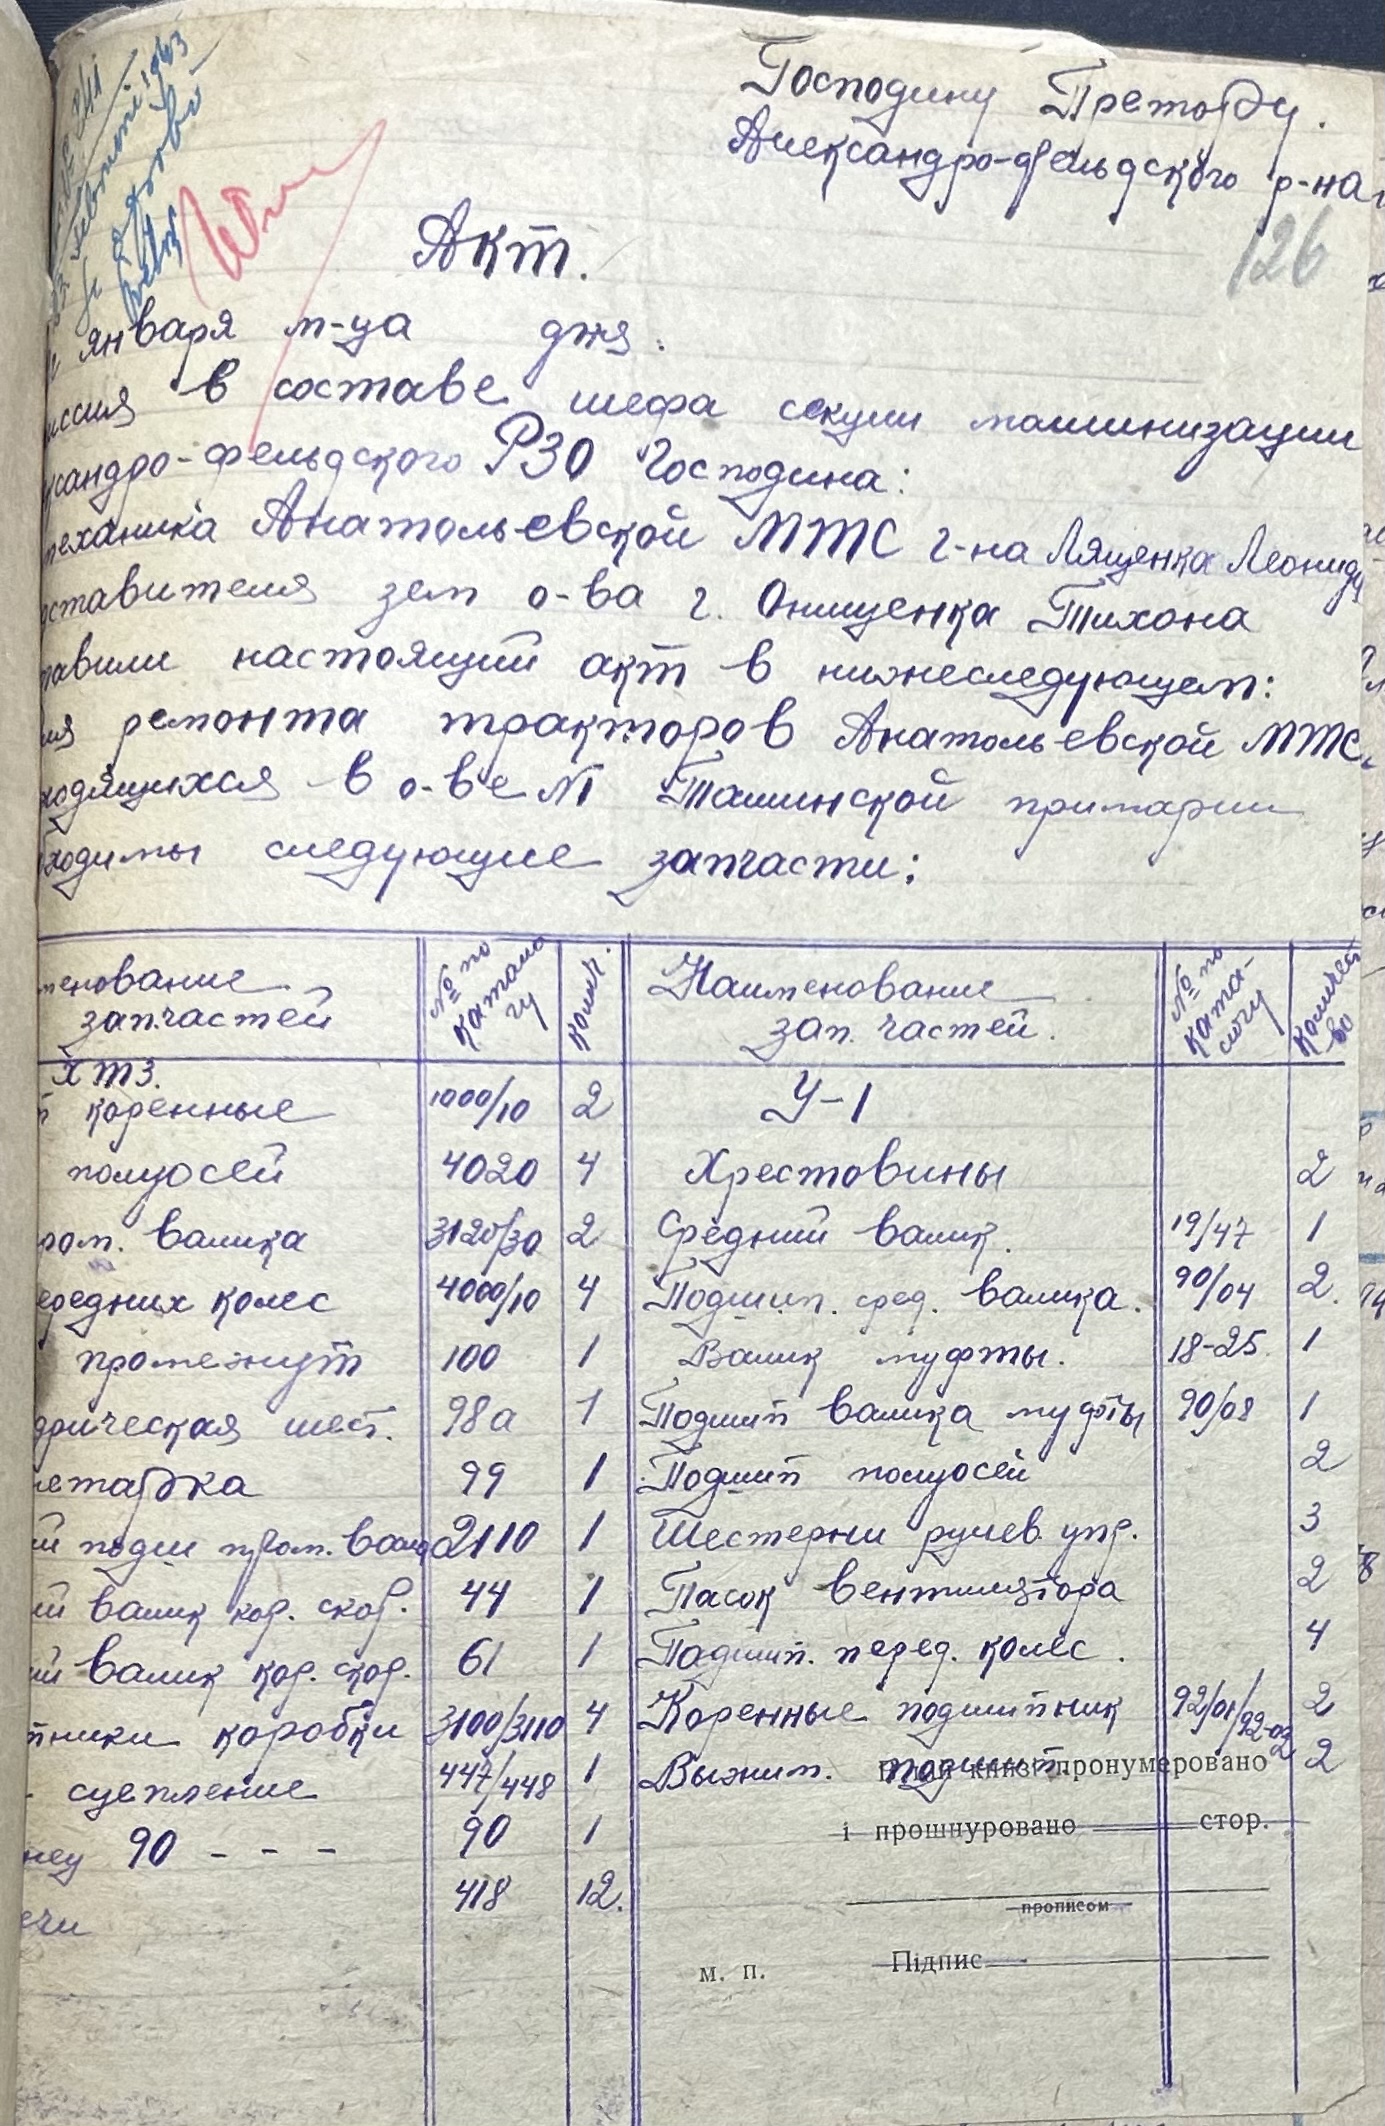 Господину Претору.
Александро-фельдского р-на
126
Акт.
января м-ца дня.
иссия в составе шефа секции машинизации
ксандро-фельдского РЗО Господина:
механика Анатольевской МТС г-на Лященка Леонида
дставителя зем о-ва г. Онищенка Тихона
тавили настоящий акт в нижеследующем:
ля ремонта тракторов Анатольевской МТС,
ходящихся в о-ве №1 Ташинской примарии
бходимы следующие запчасти:
менование запчастей № по каталогу колич. Наименование зап. частей. № по каталогу Количество
ХТЗ.
коренные 1000/10 2 У-1
полуосей 4020 4 Хрестовины 2
ром. валика 3120/30 2 Средний валик. 19/47 1
ередних колес 4000/10 4 Подшип. сред. валика. 90/04 2.
промежут 100 1 Валик муфты. 18-25. 1
дрическая шест. 98а 1 Подшип валика муфты 90/08 1
99 1 Подшип полуосей 2
ий подш пром. вали 2110 1 Шестерни рулев. упр. 3
ий валик кор. скор. 44 1 Пасок вентилятора 2
ий валик кор. скор. 61 1 Падшип. перед. колес. 4
пники коробки 3100/3110 4 Коренные подшипник 92/01/92-02 2
сцепление 447/448 1 Выжим. подшип. 2
книзі пронумеровано
90 - - - 90 1
і прошнуровано стор.
418 12.
ечи
прописом
м. п. Підпис